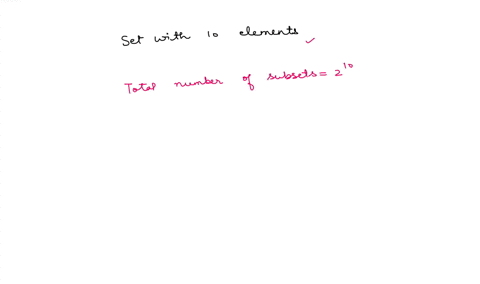 Set with 10 elements ✓
Total number of subsets = 2¹⁰